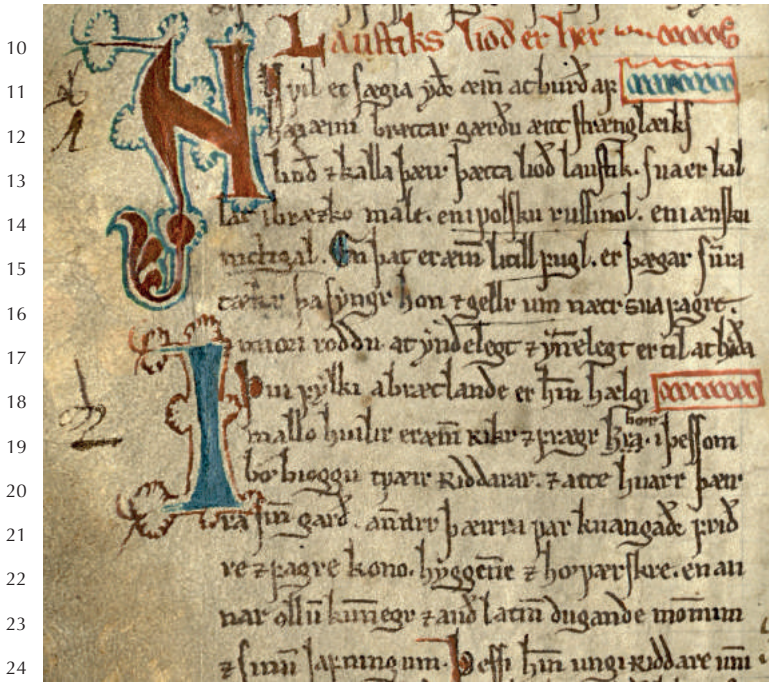 10 Laustiks lioð er her
11 Nv vil ec sægia yðr æin̄ atburð aꝼ
12 brættar gærðu æitt strænglæiks
13 lioð ⁊ kalla þæir þætta lioð laustik. sua er kal
14 lat i bræzko male. en i volsku russinol. en i ænsku
15 nictigal. En þat er æin̄ litill ꝼugl. er þægar sūra
16 tækr þa syngr hon ⁊ gellr um nætr sua ꝼagrt.
17 roddu. at yndelegt ⁊ yn̄elegt er til at lyða
18 I þui ꝼylki a brætlande er hin̄ hælgi
19 mallo huilir er æin̄ rikr ⁊ ꝼrægr i þessom
20 bø bioggu tvæir riddarar. ⁊ atte huarr þæir
21 ra sin̄ garð. an̄arr þæirra var kuangaðr ꝼrið
22 re ⁊ ꝼagre kono. hyggen̄e ⁊ hoværskre. en an
23 nar ollū kun̄egr ⁊ auðlatin̄ dugande mon̄um
24 ⁊ sinū iaꝼningium. Þessi hin̄ ungi riddare unni